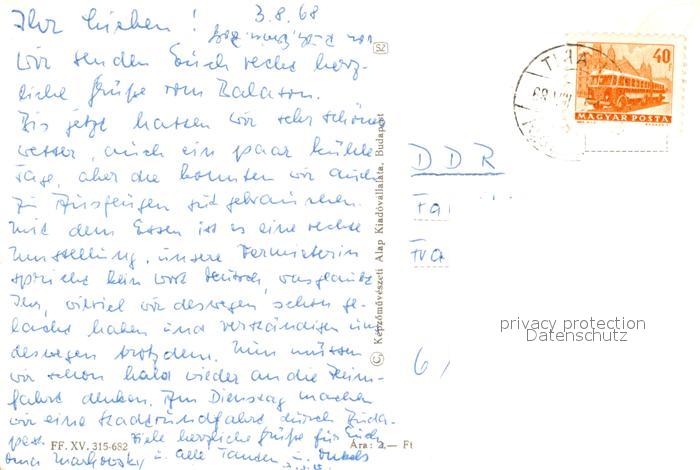 Ihr Lieben! 3.8.68
Wir senden Euch recht herz-
liche Grüße vom Balaton.
Bis jetzt hatten wir sehr schönes
Wetter, auch ein paar kühle
Tage, aber die konnten wir auch
zu Ausflügen gut gebrauchen.
Mit dem Essen ist es eine rechte
Umstellung, unsere Vermieterin
spricht kein Wort deutsch, was glaubt
Ihr, wieviel wir deswegen schon ge-
lacht haben und verständigen uns
deswegen trotzdem. Nun müssen
wir schon bald wieder an die Heim-
fahrt denken. Am Dienstag machen
wir eine Stadtrundfahrt durch Buda-
pest. Viele herzliche Grüße für Euch
Oma Markowsky u. alle Tanten u. Onkels
FF. XV. 315-682
Ára: 2,— Ft
SZ
© Képzőművészeti Alap Kiadóvállalata, Budapest
40 f
MAGYAR POSTA
DDR
Fa
Fra
6
privacy protection
Datenschutz